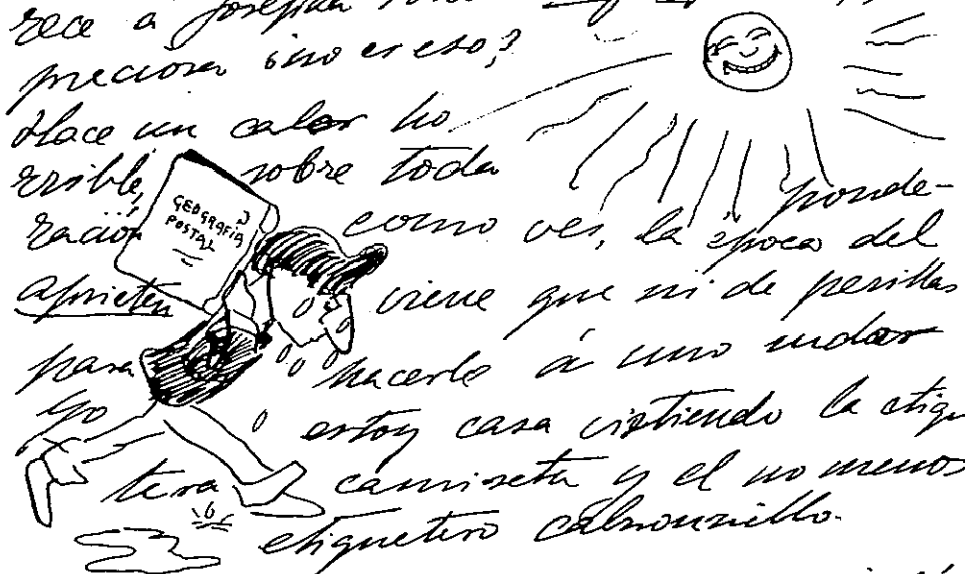 rece a Josefina
preciosa ¿no es eso?
Hace un calor ho
rrible, sobre toda ponde-
ración como ves, la época del
aprieten viene que ni de perillas
para hacerle á uno sudar
Yo estoy casa vistiendo la etiqu
tera camiseta y el no menos
etiquetero calzoncillo.
GEOGRAFIA
POSTAL